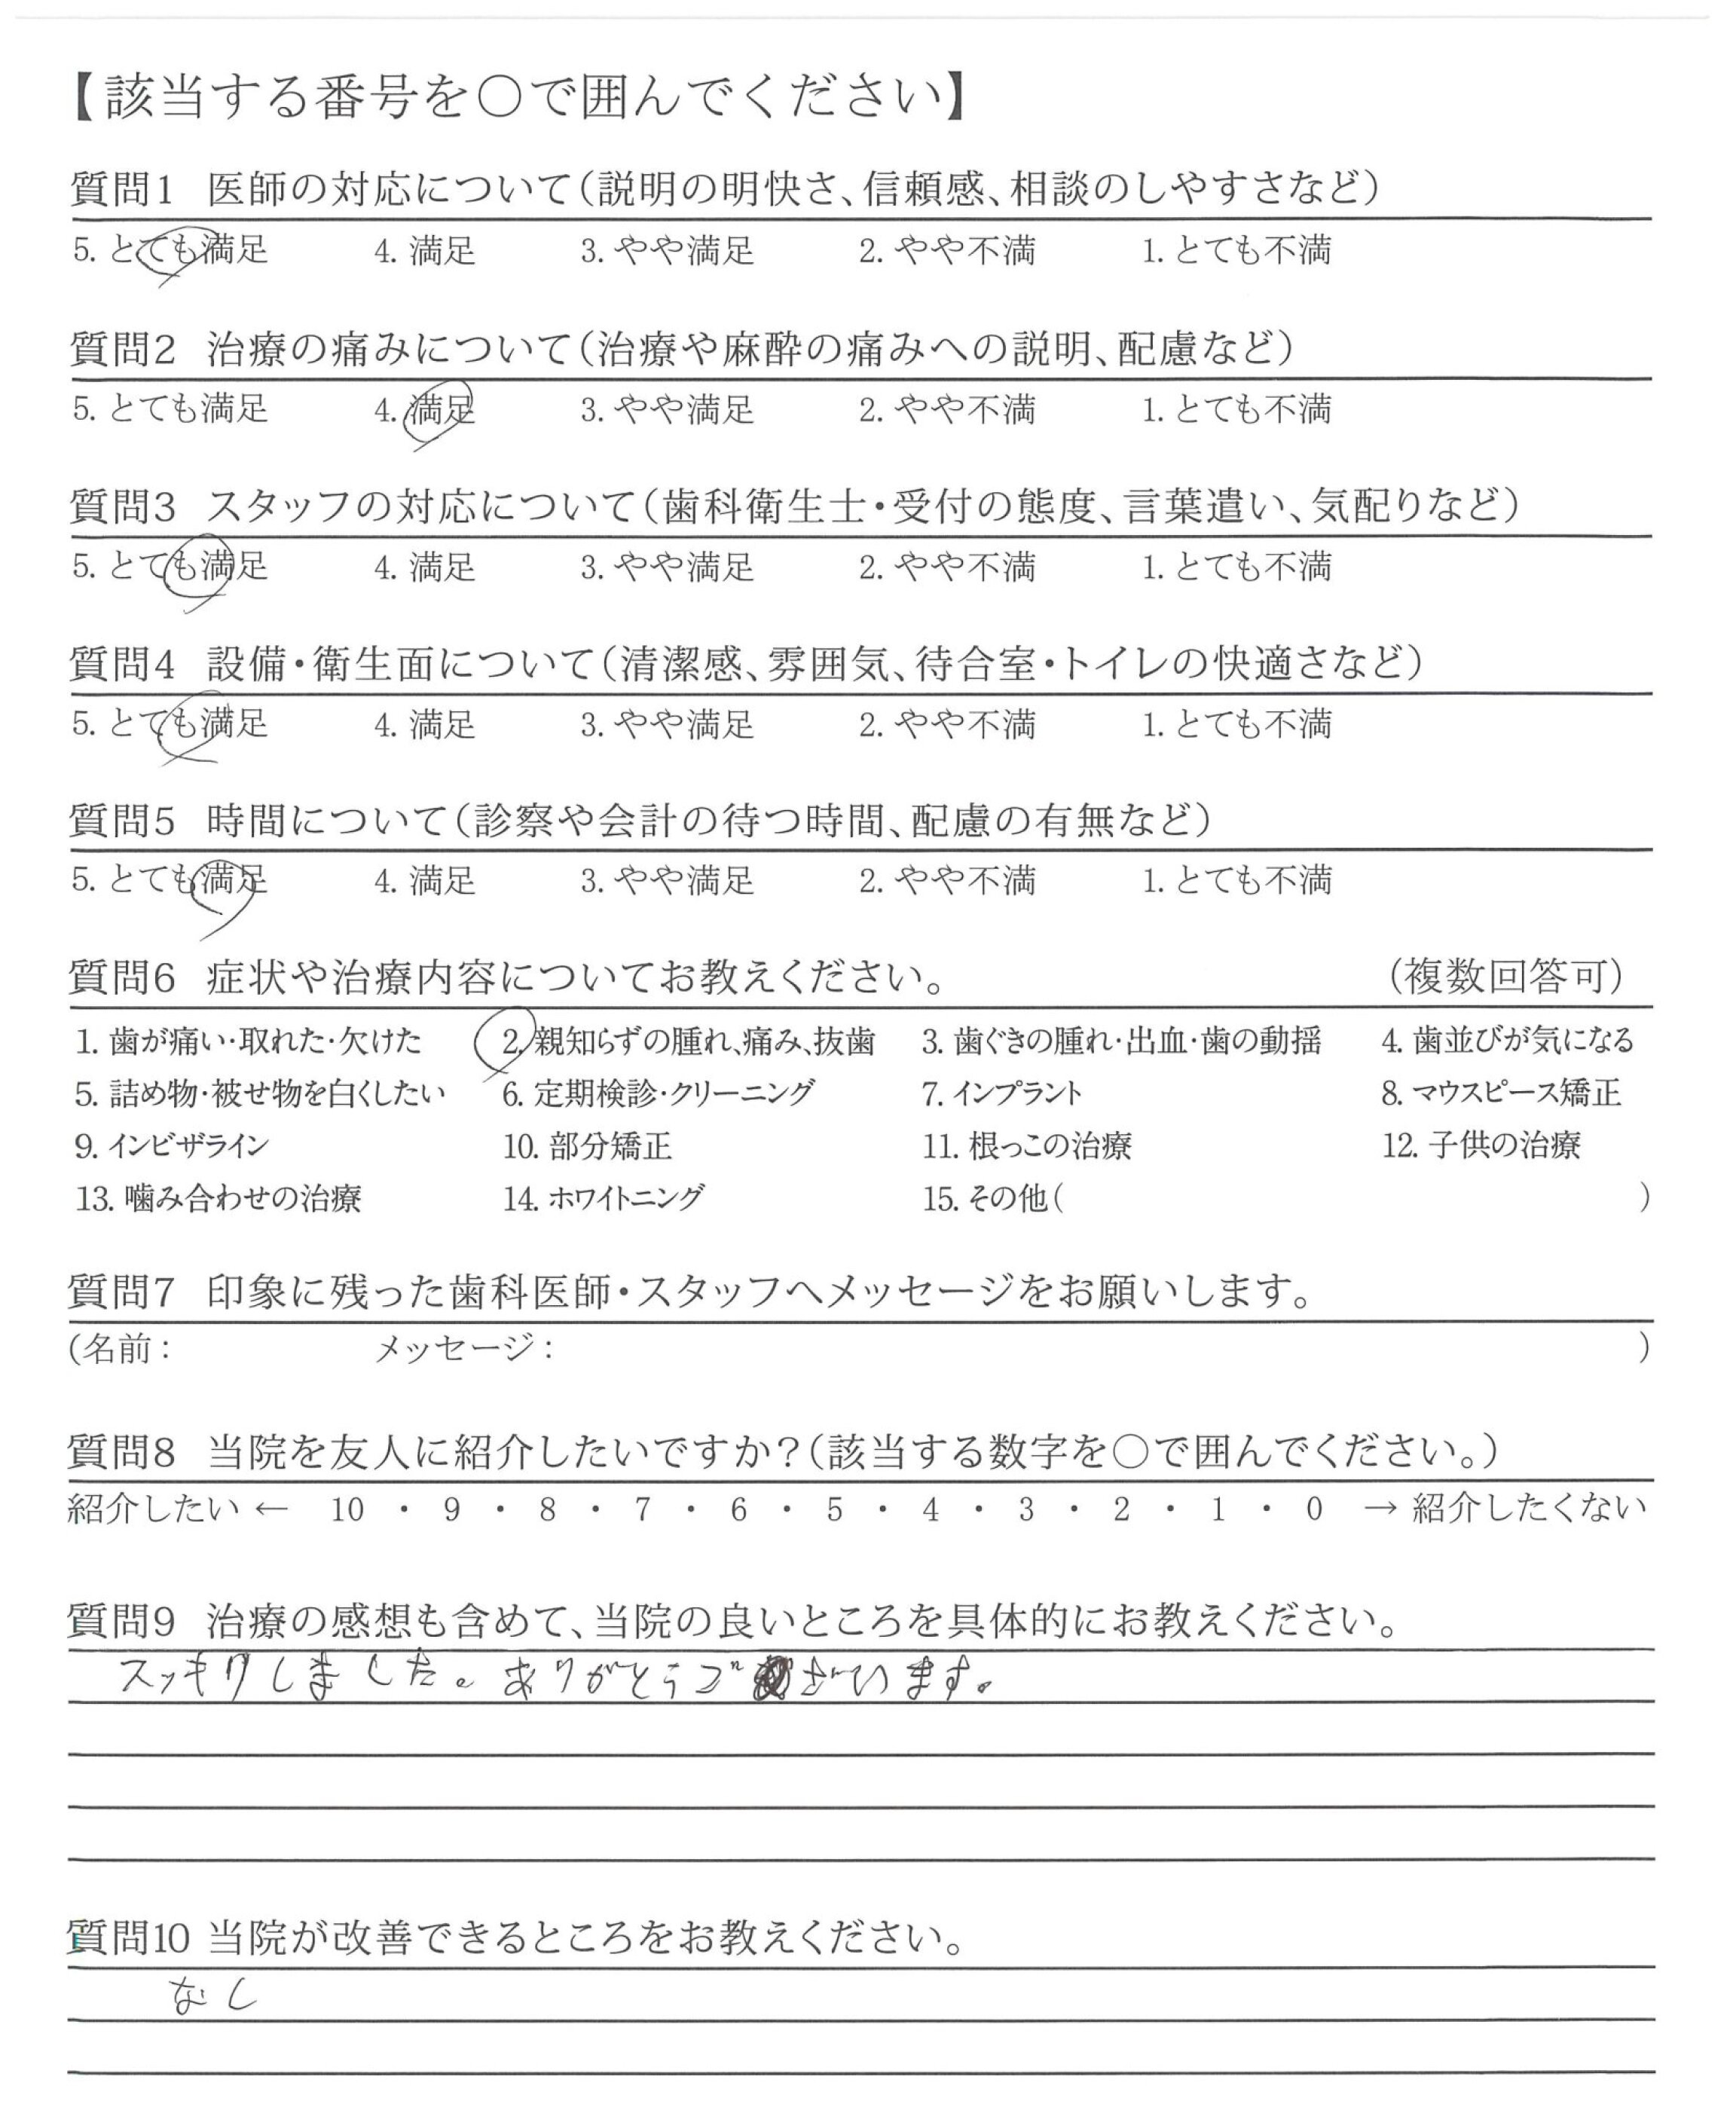 【該当する番号を○で囲んでください】
質問1 医師の対応について(説明の明快さ、信頼感、相談のしやすさなど)
5. とても満足 4. 満足 3. やや満足 2. やや不満 1. とても不満
質問2 治療の痛みについて(治療や麻酔の痛みへの説明、配慮など)
5. とても満足 4. 満足 3. やや満足 2. やや不満 1. とても不満
質問3 スタッフの対応について(歯科衛生士・受付の態度、言葉遣い、気配りなど)
5. とても満足 4. 満足 3. やや満足 2. やや不満 1. とても不満
質問4 設備・衛生面について(清潔感、雰囲気、待合室・トイレの快適さなど)
5. とても満足 4. 満足 3. やや満足 2. やや不満 1. とても不満
質問5 時間について(診察や会計の待つ時間、配慮の有無など)
5. とても満足 4. 満足 3. やや満足 2. やや不満 1. とても不満
質問6 症状や治療内容についてお教えください。 (複数回答可)
1. 歯が痛い・取れた・欠けた 2. 親知らずの腫れ、痛み、抜歯 3. 歯ぐきの腫れ・出血・歯の動揺 4. 歯並びが気になる
5. 詰め物・被せ物を白くしたい 6. 定期検診・クリーニング 7. インプラント 8. マウスピース矯正
9. インビザライン 10. 部分矯正 11. 根っこの治療 12. 子供の治療
13. 噛み合わせの治療 14. ホワイトニング 15. その他( )
質問7 印象に残った歯科医師・スタッフへメッセージをお願いします。
(名前: メッセージ: )
質問8 当院を友人に紹介したいですか?(該当する数字を○で囲んでください。)
紹介したい ← 10 ・ 9 ・ 8 ・ 7 ・ 6 ・ 5 ・ 4 ・ 3 ・ 2 ・ 1 ・ 0 → 紹介したくない
質問9 治療の感想も含めて、当院の良いところを具体的にお教えください。
スッキリしました。ありがとうございます。
質問10 当院が改善できるところをお教えください。
なし